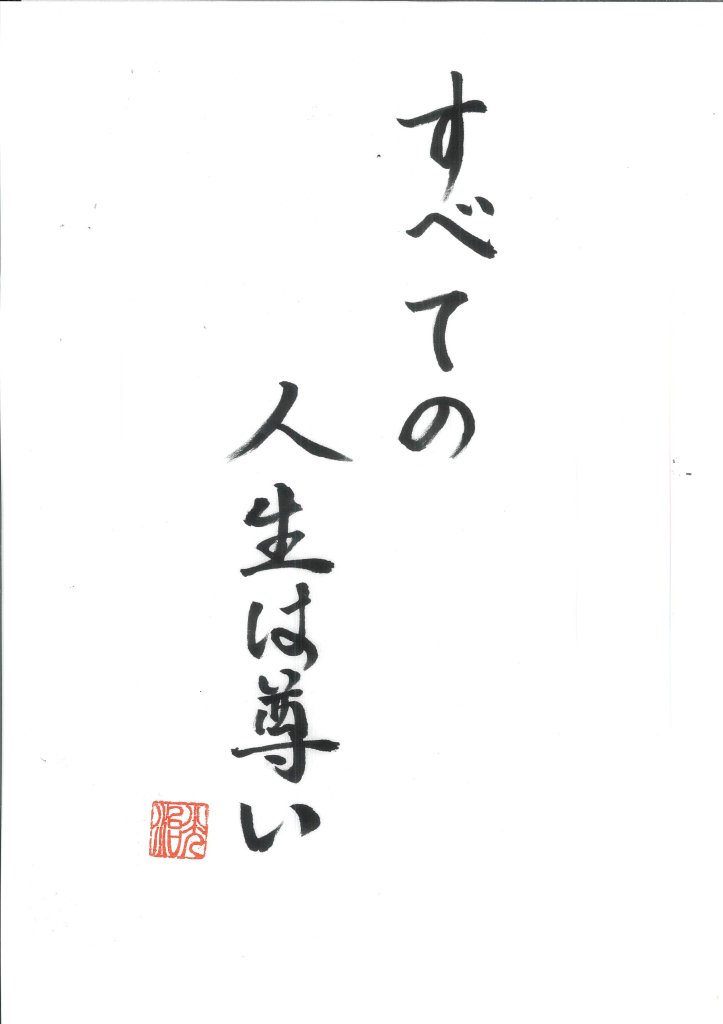 すべての
人生は尊い